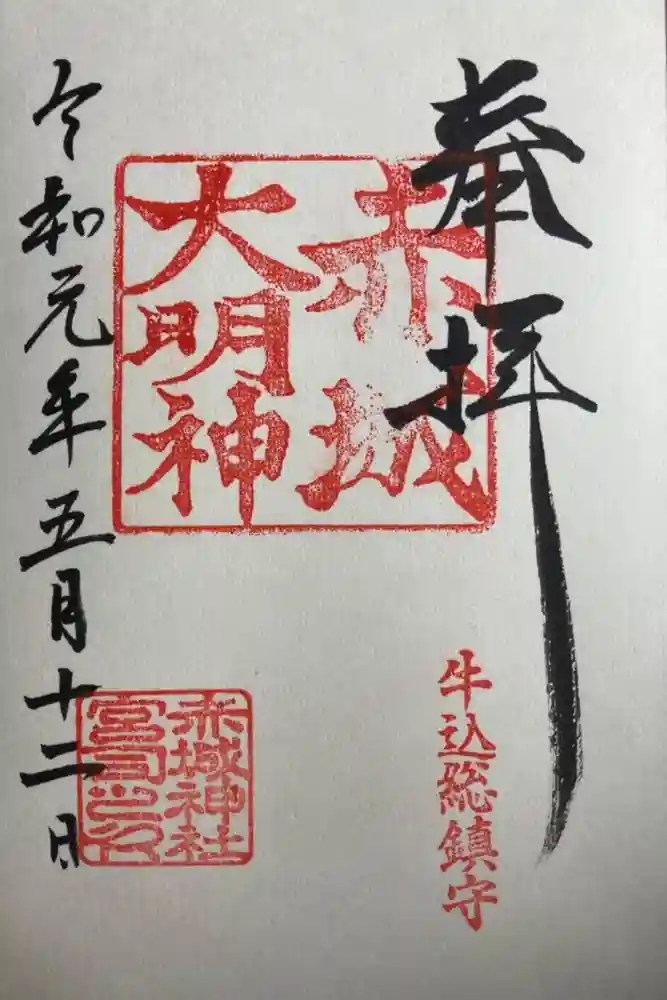 奉拝
赤城
大明神
牛込総鎮守
赤城神社
宮司之印
令和元年五月十二日